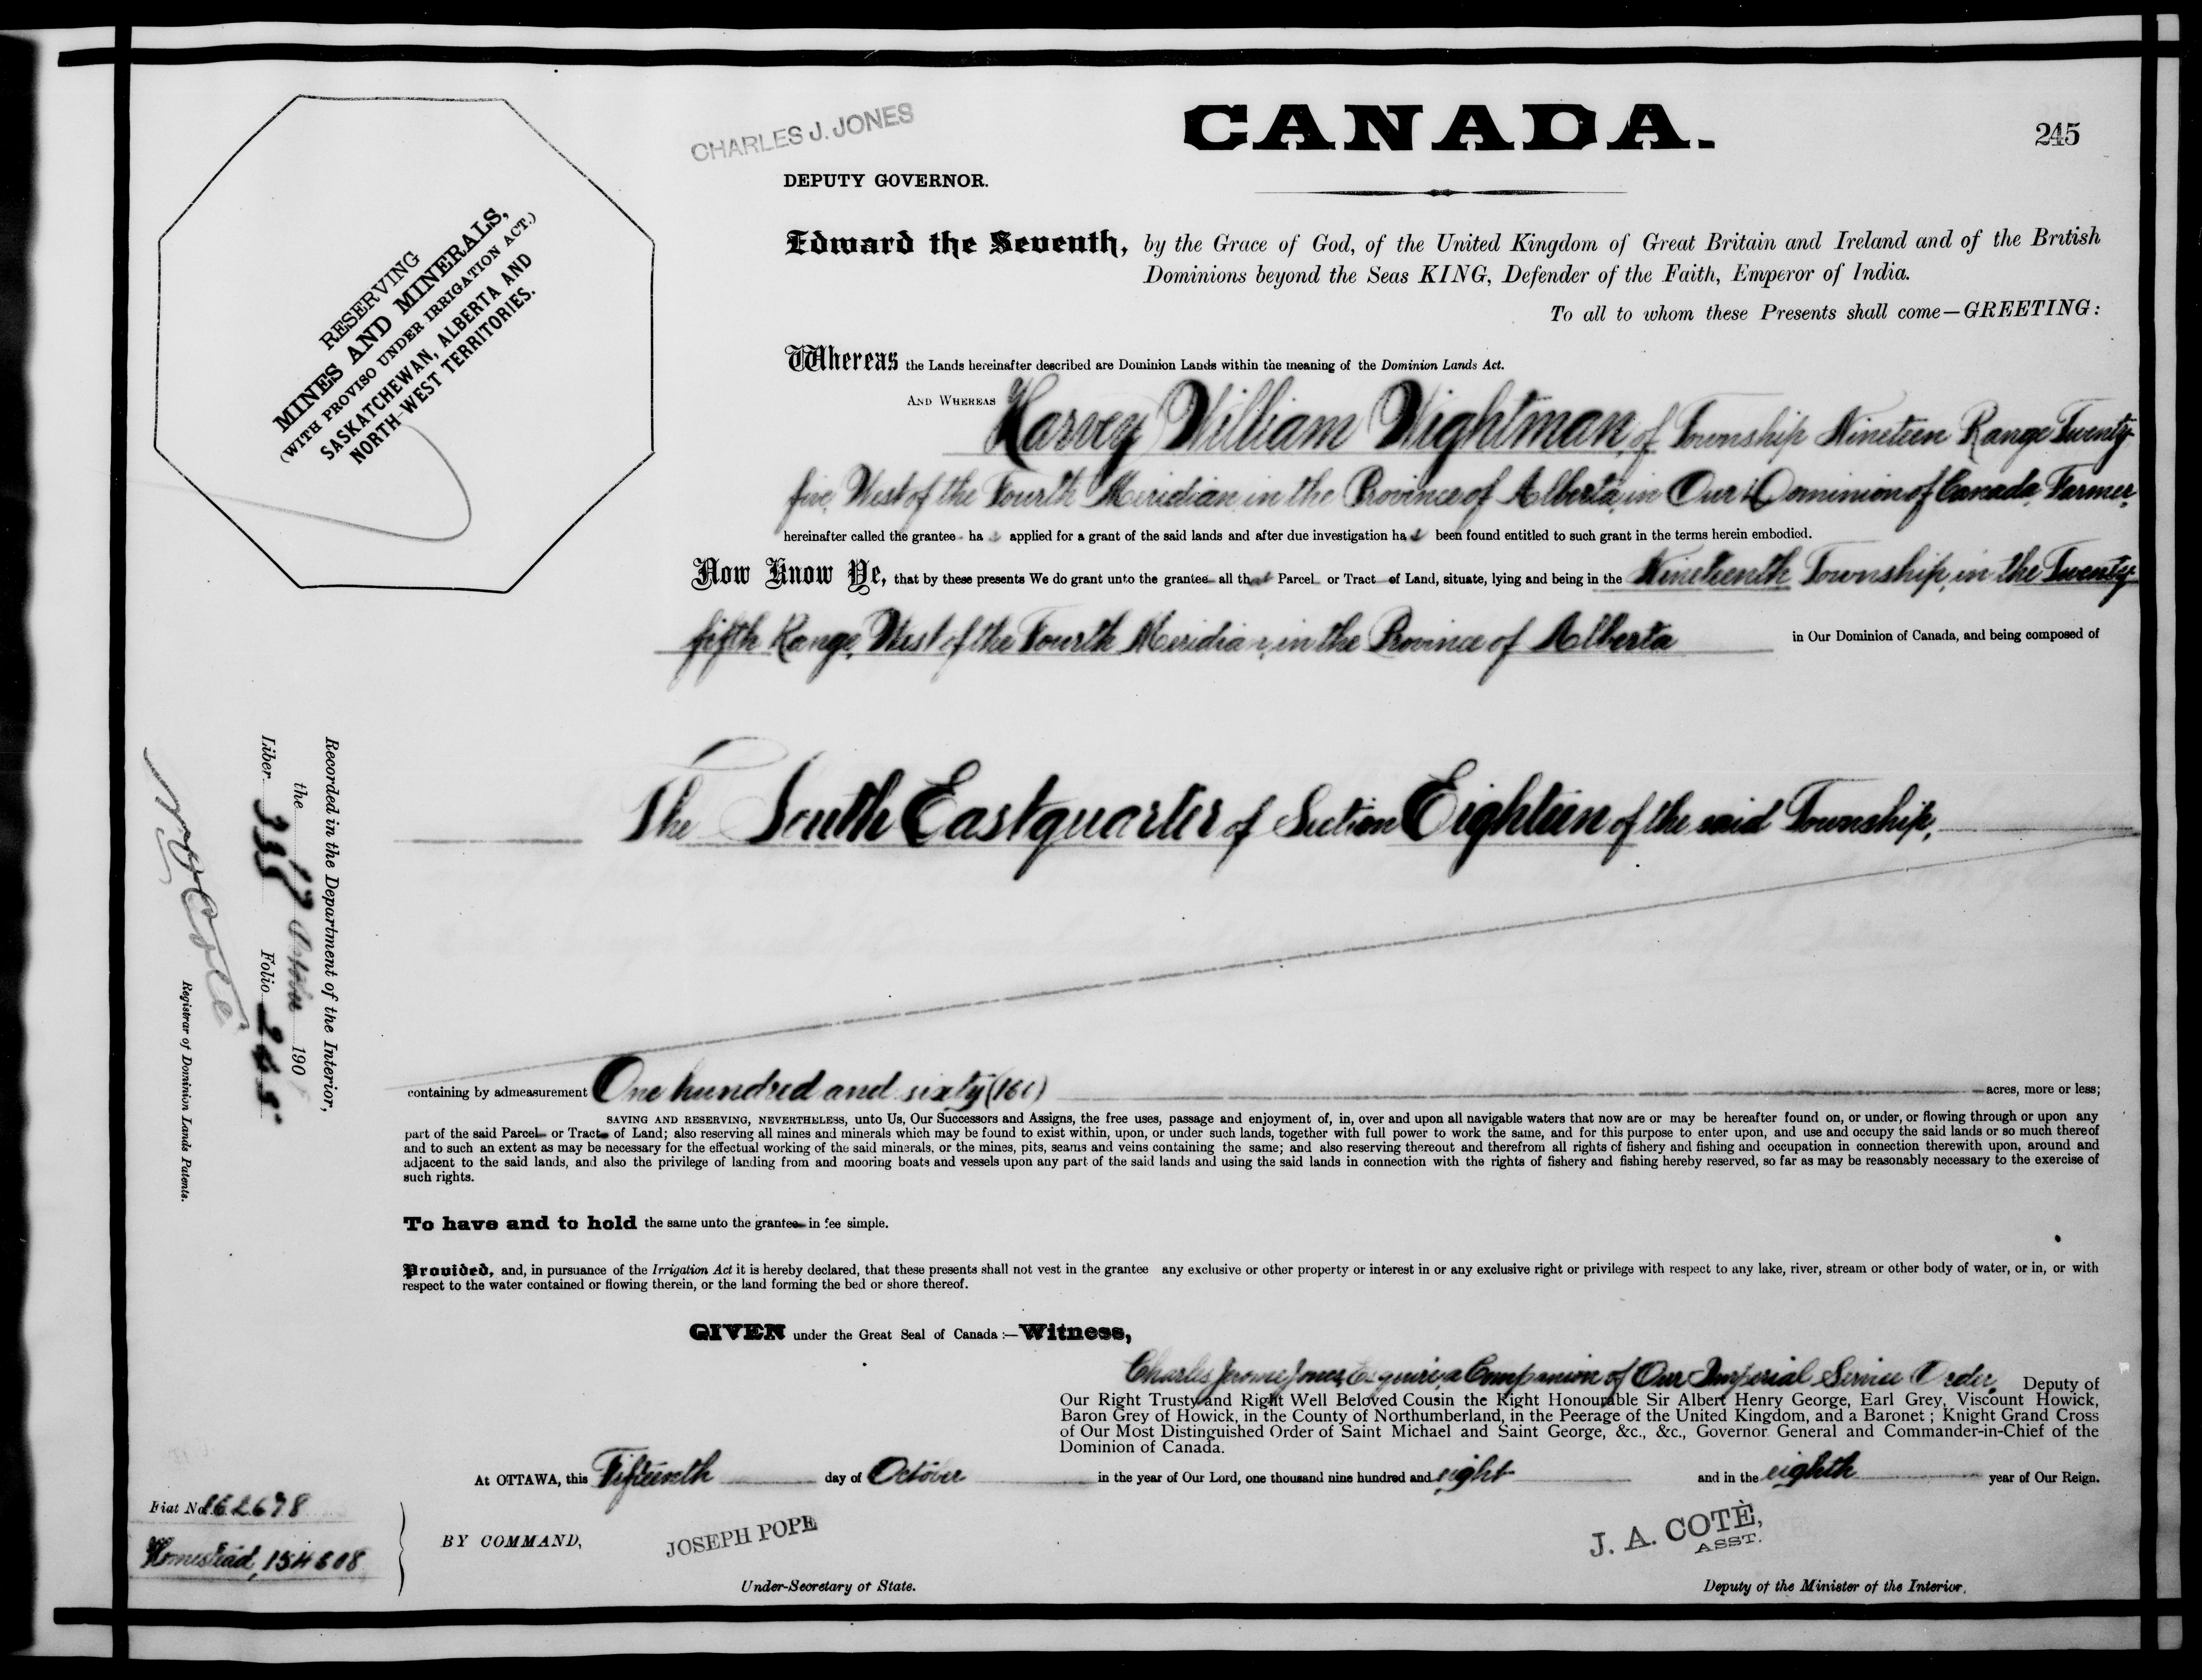 CANADA.
245
CHARLES J. JONES
DEPUTY GOVERNOR.
RESERVING
MINES AND MINERALS,
(WITH PROVISO UNDER IRRIGATION ACT.)
SASKATCHEWAN, ALBERTA AND
NORTH-WEST TERRITORIES.
Edward the Seventh, by the Grace of God, of the United Kingdom of Great Britain and Ireland and of the British
Dominions beyond the Seas KING, Defender of the Faith, Emperor of India.
To all to whom these Presents shall come—GREETING:
Whereas the Lands hereinafter described are Dominion Lands within the meaning of the Dominion Lands Act.
AND WHEREAS Harvey William Wightman, of Township Nineteen Range Twenty-
five, West of the Fourth Meridian in the Province of Alberta, in Our Dominion of Canada, Farmer,
hereinafter called the grantee ha s applied for a grant of the said lands and after due investigation ha s been found entitled to such grant in the terms herein embodied.
Now Know Ye, that by these presents We do grant unto the grantee all that Parcel or Tract of Land, situate, lying and being in the Nineteenth Township, in the Twenty-
fifth Range, West of the Fourth Meridian, in the Province of Alberta in Our Dominion of Canada, and being composed of
The South East quarter of Section Eighteen of the said Township,
containing by admeasurement One hundred and sixty (160) acres, more or less;
SAVING AND RESERVING, NEVERTHELESS, unto Us, Our Successors and Assigns, the free uses, passage and enjoyment of, in, over and upon all navigable waters that now are or may be hereafter found on, or under, or flowing through or upon any
part of the said Parcel or Tract of Land; also reserving all mines and minerals which may be found to exist within, upon, or under such lands, together with full power to work the same, and for this purpose to enter upon, and use and occupy the said lands or so much thereof
and to such an extent as may be necessary for the effectual working of the said minerals, or the mines, pits, seams and veins containing the same; and also reserving thereout and therefrom all rights of fishery and fishing and occupation in connection therewith upon, around and
adjacent to the said lands, and also the privilege of landing from and mooring boats and vessels upon any part of the said lands and using the said lands in connection with the rights of fishery and fishing hereby reserved, so far as may be reasonably necessary to the exercise of
such rights.
To have and to hold the same unto the grantee in fee simple.
Provided, and, in pursuance of the Irrigation Act it is hereby declared, that these presents shall not vest in the grantee any exclusive or other property or interest in or any exclusive right or privilege with respect to any lake, river, stream or other body of water, or in, or with
respect to the water contained or flowing therein, or the land forming the bed or shore thereof.
GIVEN under the Great Seal of Canada:—Witness,
Charles Jerome Jones, Esquire, a Companion of Our Imperial Service Order, Deputy of
Our Right Trusty and Right Well Beloved Cousin the Right Honourable Sir Albert Henry George, Earl Grey, Viscount Howick,
Baron Grey of Howick, in the County of Northumberland, in the Peerage of the United Kingdom, and a Baronet; Knight Grand Cross
of Our Most Distinguished Order of Saint Michael and Saint George, &c., &c., Governor General and Commander-in-Chief of the
Dominion of Canada.
At OTTAWA, this Fifteenth day of October in the year of Our Lord, one thousand nine hundred and eight and in the eighth year of Our Reign.
BY COMMAND,
JOSEPH POPE
Under-Secretary of State.
J. A. COTÈ,
ASST.
Deputy of the Minister of the Interior.
Recorded in the Department of the Interior,
the 17 October 190
Liber 335 Folio 245
N O Cote
Registrar of Dominion Lands Patents.
Fiat No 162678
Homestead, 154808